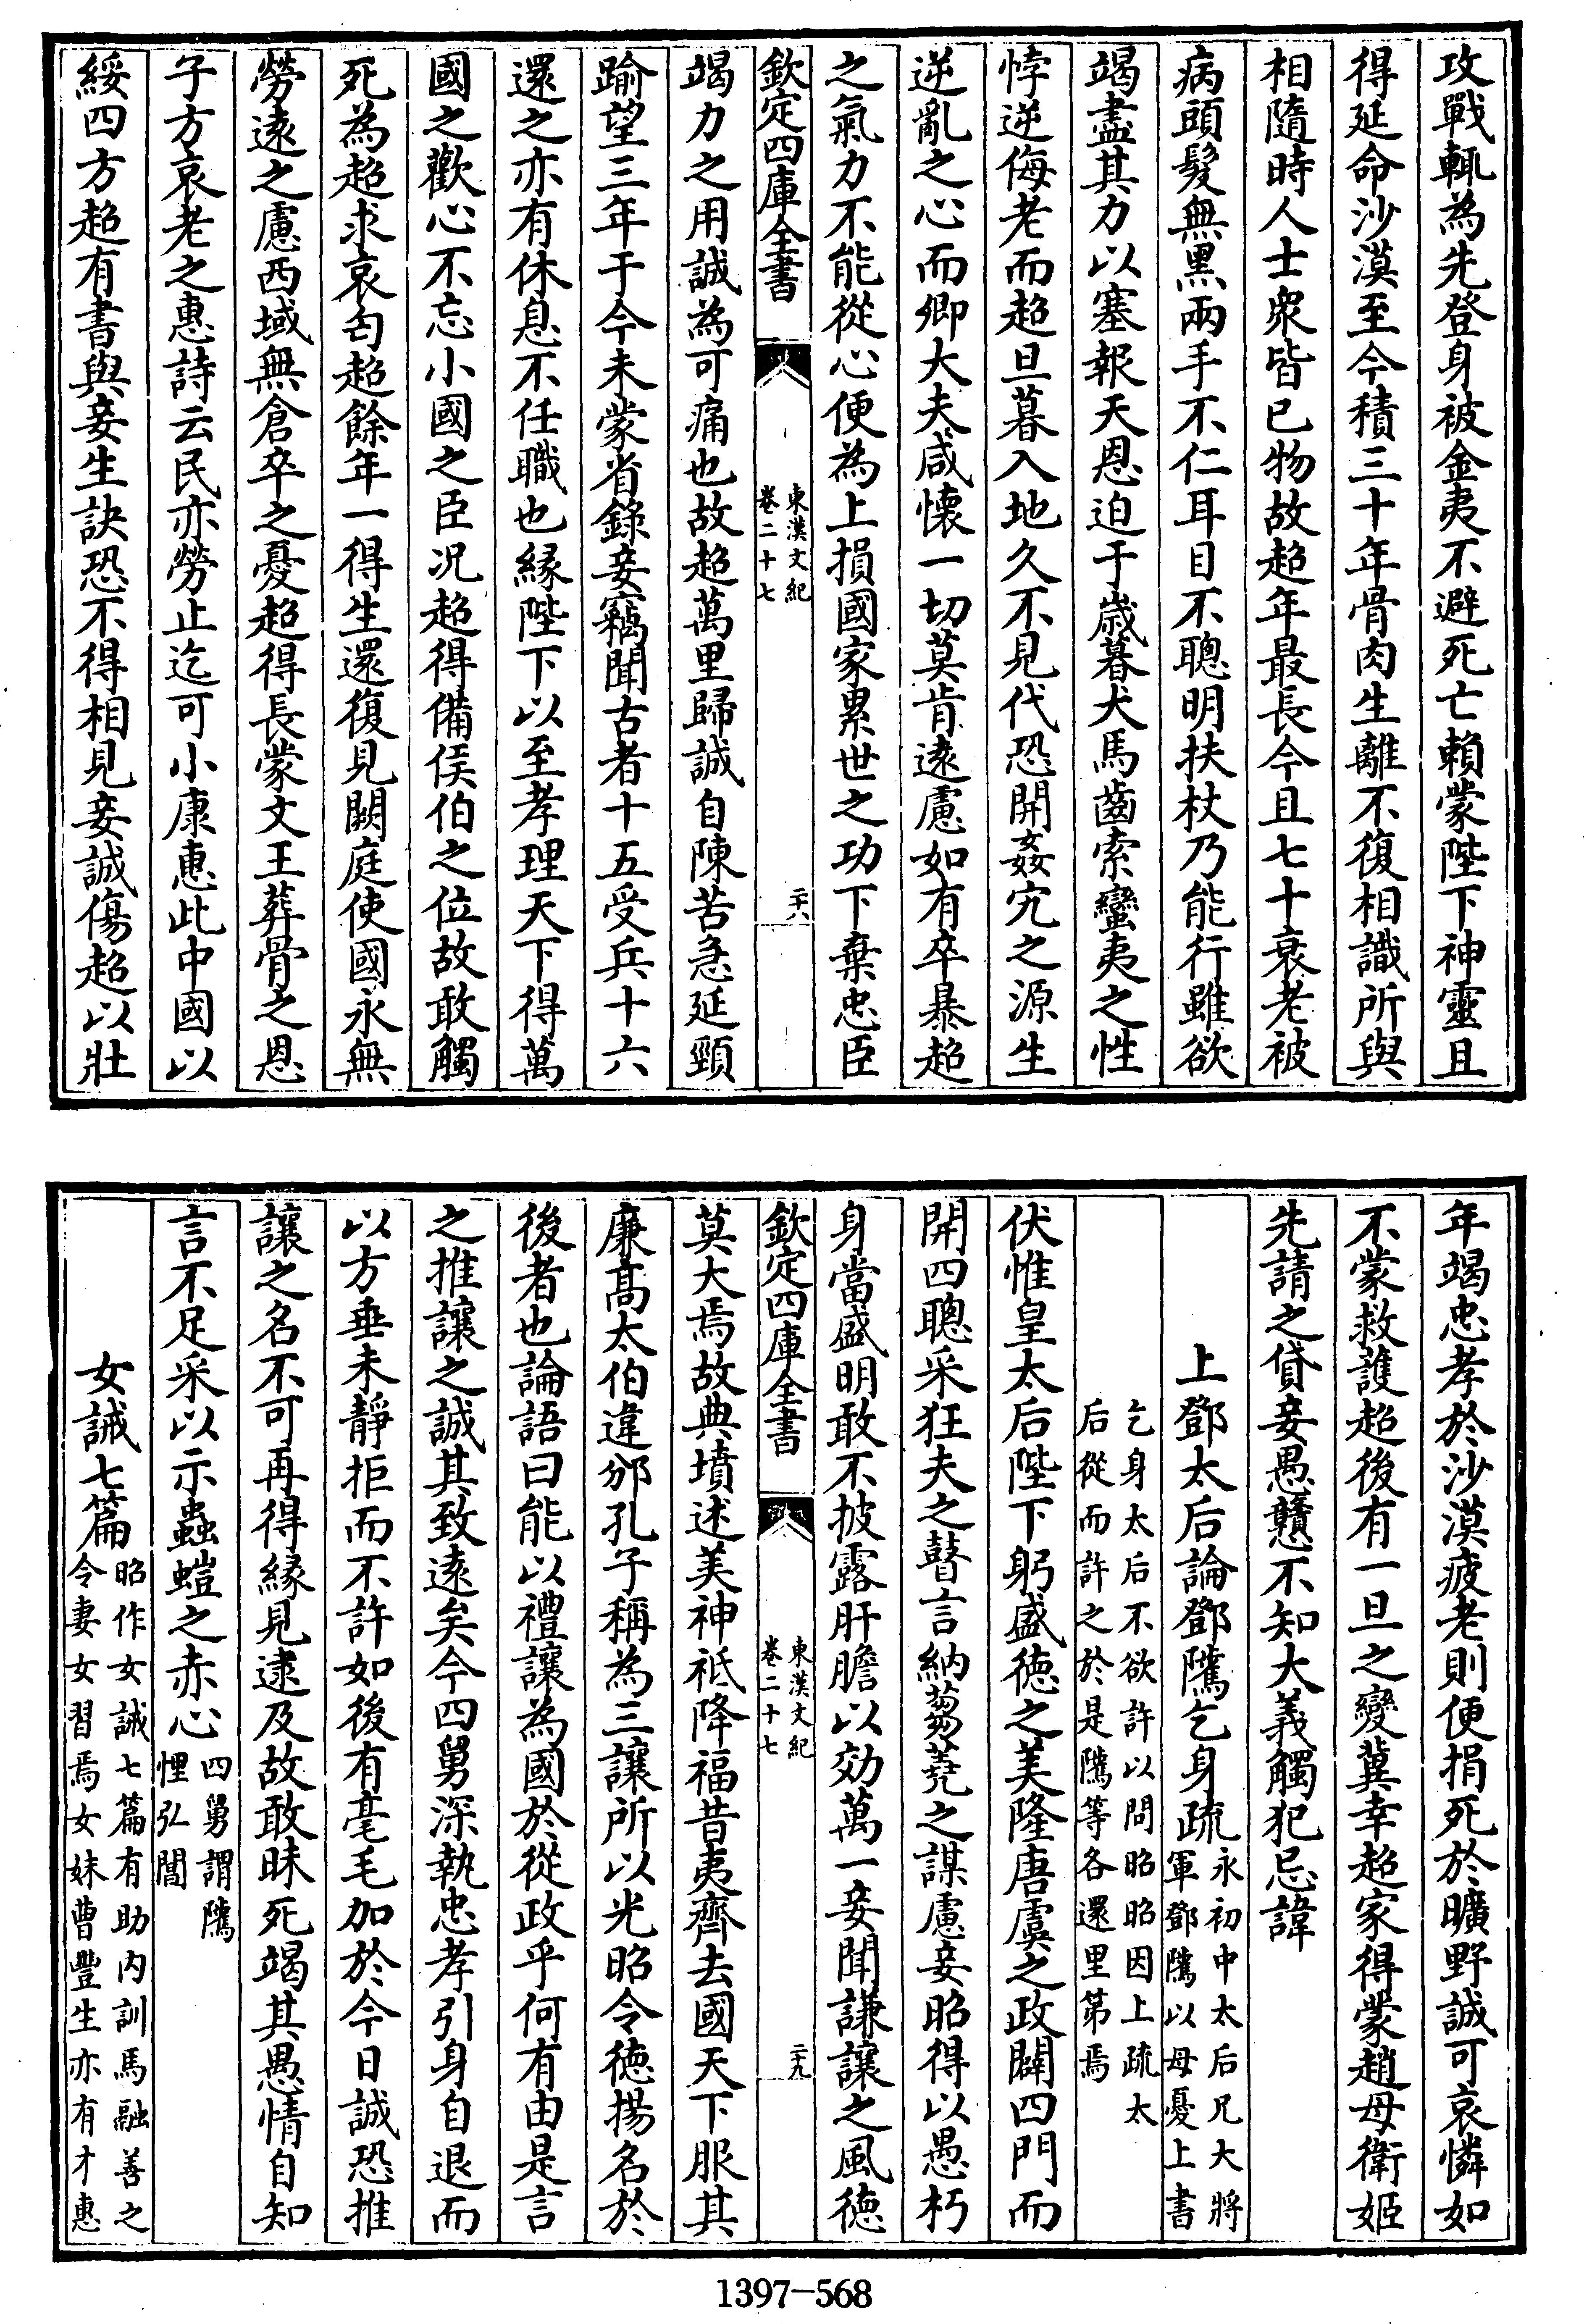 攻戰輒為先登身被金夷不避死亡賴蒙陛下神靈且
得延命沙漠至今積三十年骨肉生離不復相識所與
相隨時人士衆皆已物故超年最長今且七十衰老被
病頭髮無黑兩手不仁耳目不聰明扶杖乃能行雖欲
竭盡其力以塞報天恩迫于歲暮犬馬齒索蠻夷之性
悖逆侮老而超旦暮入地久不見代恐開姦宄之源生
逆亂之心而卿大夫咸懷一切莫肯遠慮如有卒暴超
之氣力不能從心便為上損國家累世之功下棄忠臣
欽定四庫全書
東漢文紀
卷二十七
二十八
竭力之用誠為可痛也故超萬里歸誠自陳苦急延頸
踰望三年于今未蒙省錄妾竊聞古者十五受兵十六
還之亦有休息不任職也緣陛下以至孝理天下得萬
國之歡心不忘小國之臣况超得備侯伯之位故敢觸
死為超求哀匄超餘年一得生還復見闕庭使國永無
勞遠之慮西域無倉卒之憂超得長蒙文王葬骨之恩
子方哀老之惠詩云民亦勞止迄可小康惠此中國以
綏四方超有書與妾生訣恐不得相見妾誠傷超以壯
年竭忠孝於沙漠疲老則便捐死於曠野誠可哀憐如
不蒙救護超後有一旦之變冀幸超家得蒙趙母衛姬
先請之貸妾愚戇不知大義觸犯忌諱
上鄧太后論鄧隲乞身疏
永初中太后兄大將
軍鄧隲以母憂上書
乞身太后不欲許以問昭昭因上疏太
后從而許之於是隲等各還里第焉
伏惟皇太后陛下躬盛德之美隆唐虞之政闢四門而
開四聰采狂夫之瞽言納芻蕘之謀慮妾昭得以愚朽
身當盛明敢不披露肝膽以効萬一妾聞謙讓之風德
欽定四庫全書
東漢文紀
卷二十七
二十九
莫大焉故典墳述美神祗降福昔夷齊去國天下服其
廉高太伯違邠孔子稱為三讓所以光昭令德揚名於
後者也論語曰能以禮讓為國於從政乎何有由是言
之推讓之誠其致遠矣今四舅深執忠孝引身自退而
以方垂未靜拒而不許如後有毫毛加於今日誠恐推
讓之名不可再得緣見逮及故敢昧死竭其愚情自知
言不足采以示蟲螘之赤心
四舅謂隲
悝弘閶
女誡七篇
昭作女誡七篇有助內訓馬融善之
令妻女習焉女妹曹豐生亦有才惠
1397-568